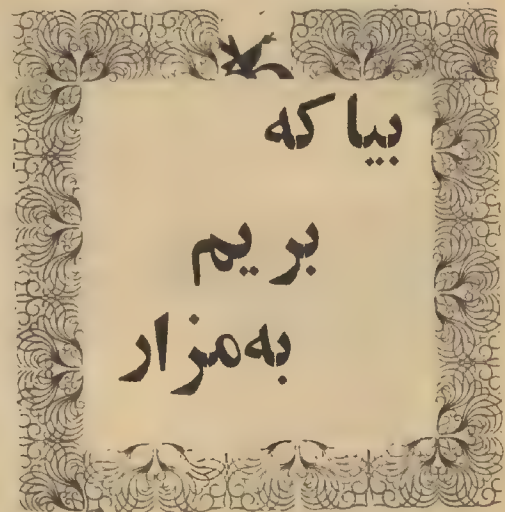 بیا که
بریم
به‌مزار